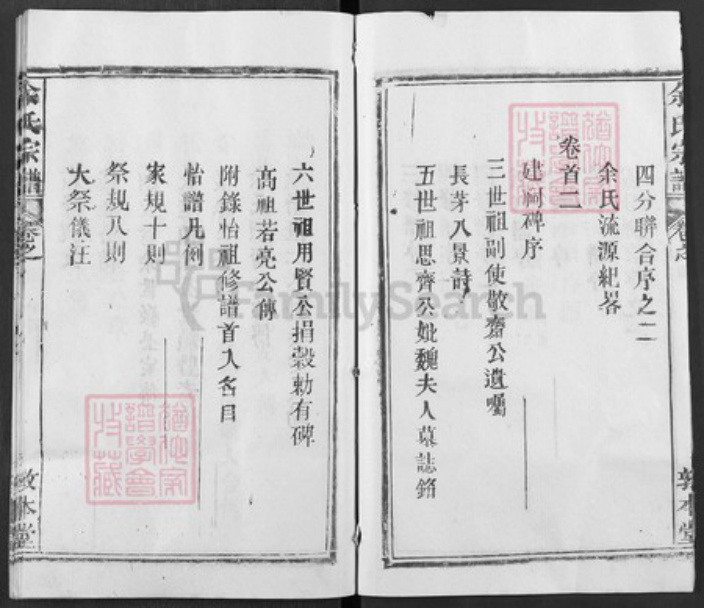 余氏宗譜
四分聯合序之二
余氏流源紀畧
卷首二
建祠碑序
三世祖副使敬齋公遺囑
長茅八景詩
五世祖思齊公妣魏夫人墓誌銘
敦本堂
六世祖用賢公捐穀勅有碑
高祖若亮公傳
附錄怡祖修譜首人名目
怡譜凡例
家規十則
祭規八則
大祭儀注
余氏宗譜
卷之
敦本堂
FamilySearch